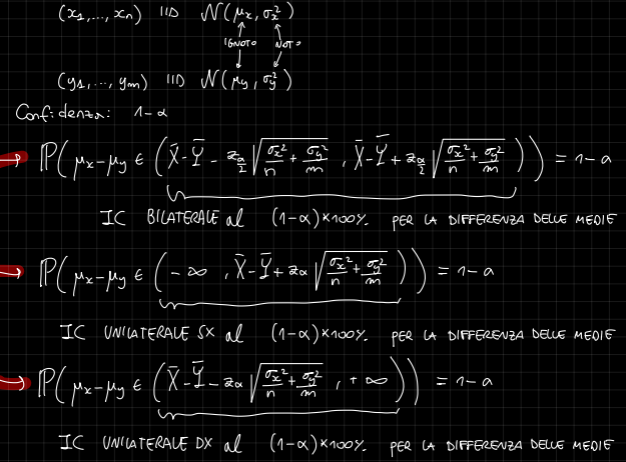 (x₁,..., xₙ) IID N(μₓ, σₓ²)
IGNOTO NOTO
(y₁,..., yₘ) IID N(μᵧ, σᵧ²)
Confidenza: 1-α
→ ℙ( μₓ-μᵧ ∈ ( X̄-Ȳ - z_{α/2} √(σₓ²/n + σᵧ²/m) , X̄-Ȳ + z_{α/2} √(σₓ²/n + σᵧ²/m) ) ) = 1-α
IC BILATERALE al (1-α)×100%. PER LA DIFFERENZA DELLE MEDIE
→ ℙ( μₓ-μᵧ ∈ ( -∞ , X̄-Ȳ + z_α √(σₓ²/n + σᵧ²/m) ) ) = 1-α
IC UNILATERALE SX al (1-α)×100%. PER LA DIFFERENZA DELLE MEDIE
→ ℙ( μₓ-μᵧ ∈ ( X̄-Ȳ - z_α √(σₓ²/n + σᵧ²/m) , +∞ ) ) = 1-α
IC UNILATERALE DX al (1-α)×100%. PER LA DIFFERENZA DELLE MEDIE